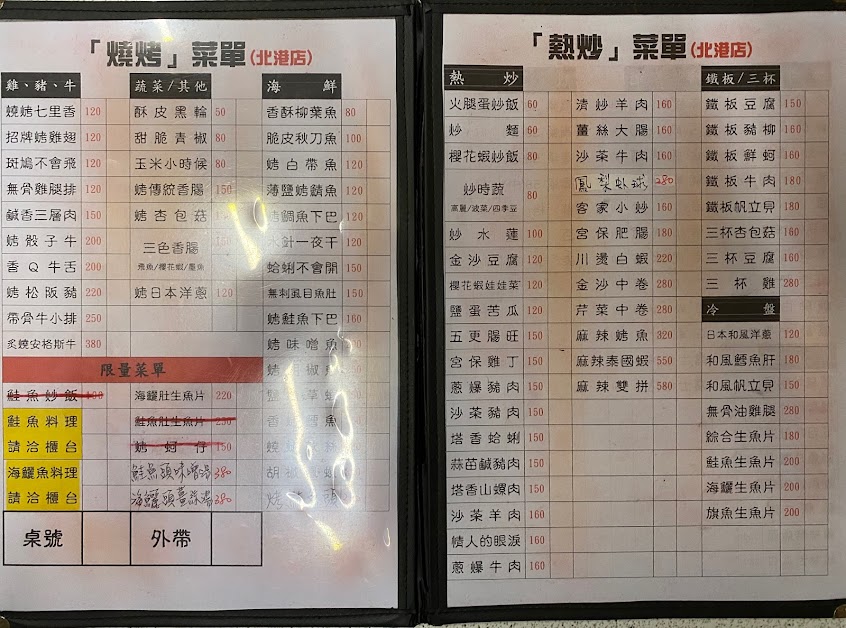 「燒烤」菜單(北港店)
雞、豬、牛
燒烤七里香 120
招牌烤雞翅 120
斑鳩不會飛 120
無骨雞腿排 120
鹹香三層肉 150
烤骰子牛 200
香Q牛舌 200
烤松阪豬 220
帶骨牛小排 250
炙燒安格斯牛 380
蔬菜/其他
酥皮黑輪 50
甜脆青椒 80
玉米小時候 80
烤傳統香腸 150
烤杏包菇
三色香腸
飛魚/櫻花蝦/墨魚
烤日本洋蔥 120
海鮮
香酥柳葉魚 80
脆皮秋刀魚 100
烤白帶魚 120
薄鹽烤鯖魚 120
烤鯛魚下巴 120
水針一夜干 120
蛤蜊不會開 150
無刺虱目魚肚 150
烤鮭魚下巴 160
烤味噌魚
限量菜單
鮭魚炒飯
鮭魚料理
請洽櫃台
海鱺魚料理
請洽櫃台
海鱺肚生魚片 220
鮭魚肚生魚片 250
烤蚵仔 150
鮭魚頭味噌湯 380
海鱺頭薑絲湯 380
桌號
外帶
「熱炒」菜單(北港店)
熱炒
火腿蛋炒飯 60
炒麵 60
櫻花蝦炒飯 80
炒時蔬 80
高麗/波菜/四季豆
炒水蓮 100
金沙豆腐 120
櫻花蝦娃娃菜 120
鹽蛋苦瓜 120
五更腸旺 150
宮保雞丁 150
蔥爆豬肉 150
沙茶豬肉 150
塔香蛤蜊 150
蒜苗鹹豬肉 150
塔香山螺肉 150
沙茶羊肉 160
情人的眼淚 160
蔥爆牛肉 160
清炒羊肉 160
薑絲大腸 160
沙茶牛肉 160
鳳梨蝦球 280
客家小炒 160
宮保肥腸 180
川燙白蝦 220
金沙中卷 280
芹菜中卷 280
麻辣烤魚 320
麻辣泰國蝦 550
麻辣雙拼 580
鐵板/三杯
鐵板豆腐 150
鐵板豬柳 160
鐵板鮮蚵 160
鐵板牛肉 180
鐵板帆立貝 180
三杯杏包菇 160
三杯豆腐 160
三杯雞 280
冷盤
日本和風洋蔥 120
和風鱈魚肝 180
和風帆立貝 150
無骨油雞腿 280
綜合生魚片 280
鮭魚生魚片 200
海鱺生魚片 200
旗魚生魚片 200